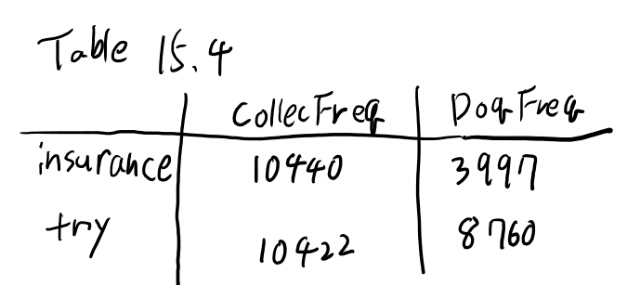 Table 15.4
CollecFreq DoqFreq
insurance 10440 3997
try 10422 8760